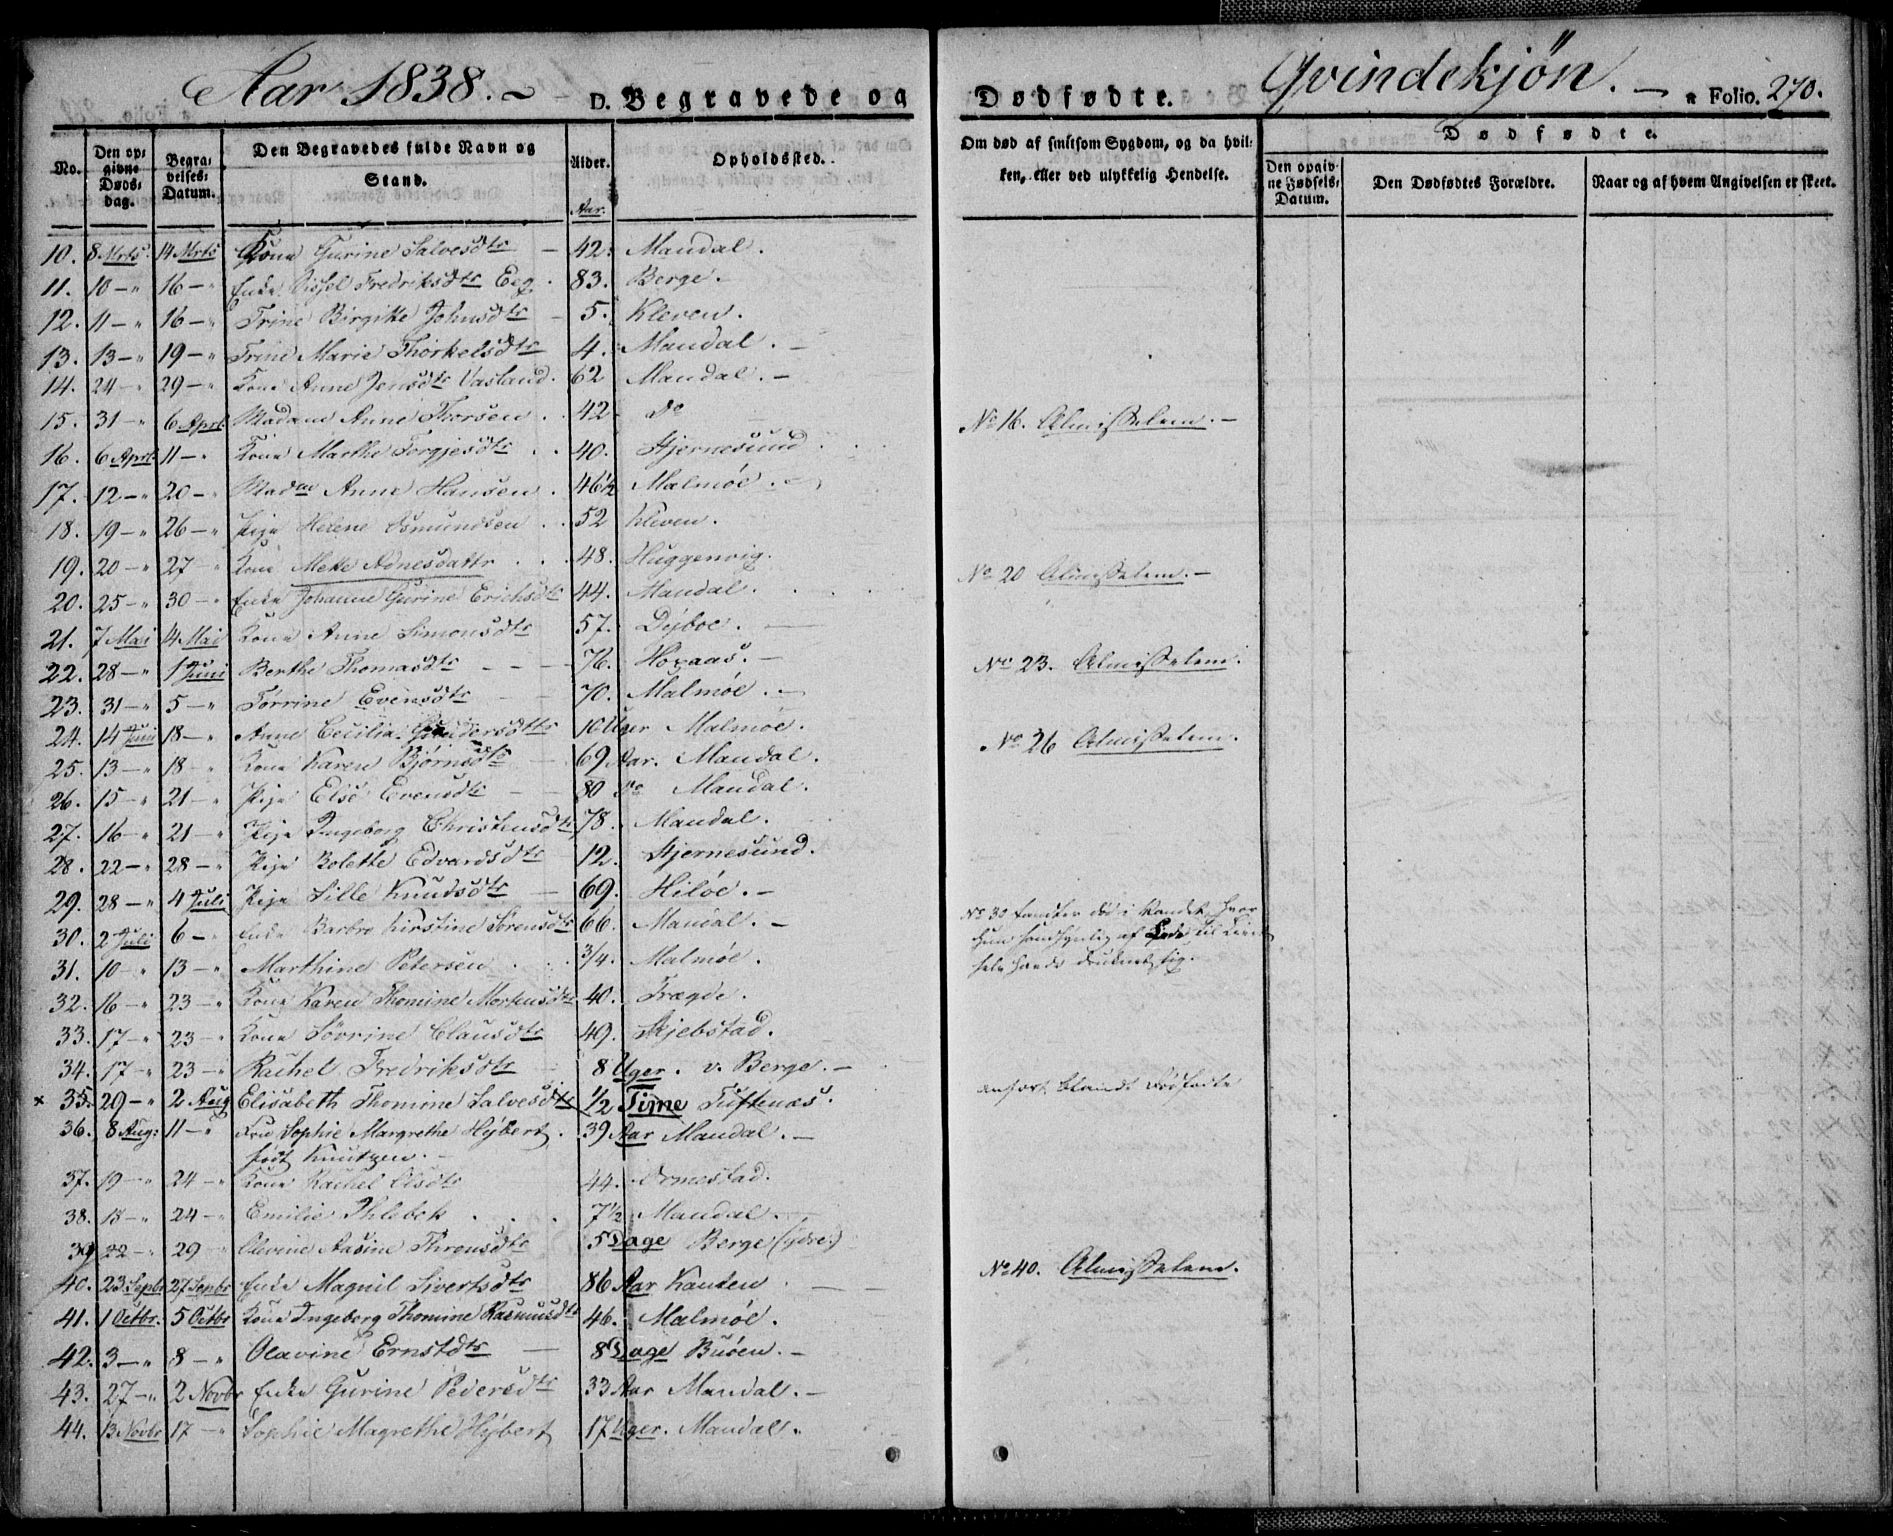 Aar 1838. D. Begravede og
No. Den opgivne Døds-dag. Begravelses-Datum. Den Begravedes fulde Navn og Stand. Alder. Aar. Opholdssted.
10. 8 Mrts. 14 Mrts Kone Gurine Salvesdtr 42. Mandal.
11. 10 – " 16 – " Enke Fredriksdtr Eeg. 83. Berge.
12. 11 – " 16 – " Trine Birgitte Johnsdtr 5. Kleven.
13. 13 – " 19 – " Trine Marie Thorkelsdtr 4. Mandal. –
14. 24 – " 29 – " Kone Anne Jensdtr Vasland. 62 Mandal. –
15. 31 – " 6 April Madam Anne Thorsen . . 42 Do
16. 6 April 11 – " Kone Marthe Torgjesdtr . . 40. Stjernesund
17. 12 – " 20 – " Madm Anne Hansen . 46½ Malmöe. –
18. 19 – " 26 – " Pige Helene Osmundsen . . 52 Kleven.
19. 20 – " 27 – " Kone Mette Adnesdattr . . . 48. Huggenvig.
20. 25 – " 30 – " Enke Johanne Gurine Erichsdtr 44. Mandal.
21. 7 Mai 14 Mai Kone Anne Simonsdtr 57. Dÿboe.
22. 28 – " 1 Juni Berthe Thomasdtr – – – 76. Hogaas. –
23. 31 – " 5 – " Torrine Evensdtr – – 70. Malmöe. –
24. 14 Juni 18 – " Anne Cecilia Gundersdtr 10 Uger Malmöe.
25. 13 – " 18 – " Kone Karen Bjørnsdtr 69 Aar. Mandal.
26. 15 – " 21 – " Pige Else Evensdtr – – 80 Do Mandal.
27. 16 – " 21 – " Pige Ingeborg Christensdtr 78. Mandal.
28. 22 – " 28 – " Pige Bolette Edvardsdtr 12. Stjernesund.
29. 28 – " 4 Juli Pige Sille Knudsdtr – 69. Hilöe. –
30. 2 Juli 6 – " Enke Barbro Kirstine Sørensdtr 66. Mandal. –
31. 10 – " 13 – " Marthine Petersen . . . 3/4. Malmöe.
32. 16 – " 23 – " Kone Karen Thomine Mortensdtr 40. Trægde.
33. 17 – " 23 – " Kone Sövrine Clausdtr 49. Skjebstad.
34. 17 – " 23 – " Rachel Fredriksdtr 8 Uger. v. Berge. –
× 35. 29 – " 2 Aug Elisabeth Thomine Salvesdtr ½ Time Tuftenæs.
36. 8 Aug: 11 – " Fru Sophie Margrethe Hÿbert . 39 Aar Mandal. –
født Knutzen. –
37. 19 – " 24 – " Kone Rachel Olsdtr 44. Ormestad.
38. 18 – " 24 – " Emilie Ihlebek . . . 7½ Mandal. –
39 22 – " 29 – " Olevine Aasine Thronsdtr 5 Dage Berge (ÿdre.)
40. 23 Septbr 27 Septbr Enke Magnil Sivertsdtr 86 Aar Kanten . –
41. 1 Octbr. 5 Octbr Kone Ingeborg Thomine Rasmusdtr 46. Malmöe.
42. 3 – " 8 – " Olavine Ernstdtr – 8 Dage Buöen. –
43. 27 – " 2 Novbr Enke Gurine Pedersdtr 33 Aar Mandal. –
44. 13 Novbr 17 – " Sophie Magrethe Hÿbert 17 Uger. Mandal.
Dødfødte. Qvindekjøn. – " Folio. 270.
Om død af smitsom Sygdom, og da hvil-
ken, eller ved ulykkelig Hendelse.
Dødfødte.
Den opgiv-
ne Fødsels-
Datum. Den Dødfødtes Forældre. Naar og af hvem Angivelsen er skeet.
No 16. Almisselem. –
No 20 Almisselem. –
No 23. Almisselem.
No 26 Almisselem.
No 30 fandtes død i Vandet, hvor
hun sandsynlig af
druknet sig.
anført blandt Dødfødte
No 40. Almisselem.